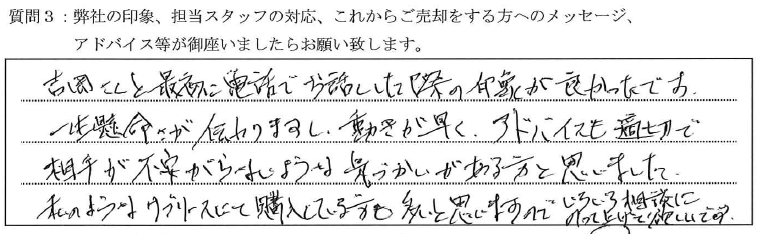 質問３：弊社の印象、担当スタッフの対応、これからご売却をする方へのメッセージ、
アドバイス等が御座いましたらお願い致します。
吉岡さんと最初に電話でお話しした際の印象が良かったです。
一生懸命さが伝わりますし、動きが早く、アドバイスも適切で
相手が不安がらないような気づかいがある方と思いました。
私のようなサブリースにて購入している方も多いと思いますので いろいろ相談に
のって上げて欲しいです。